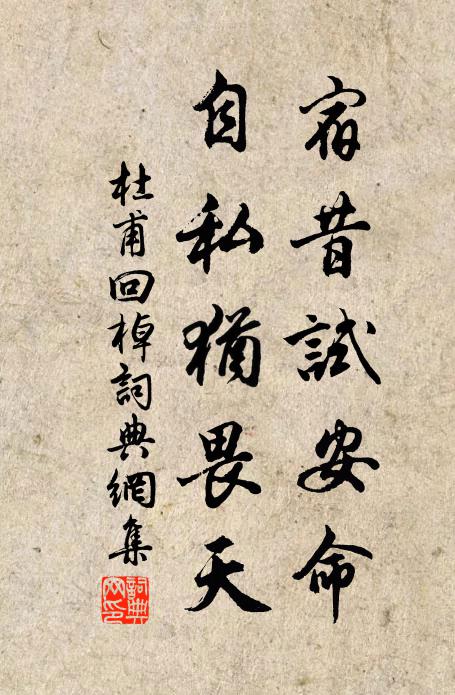 宿昔試安命
自私猶畏天
杜甫回棹詞典網集
詞典
網印